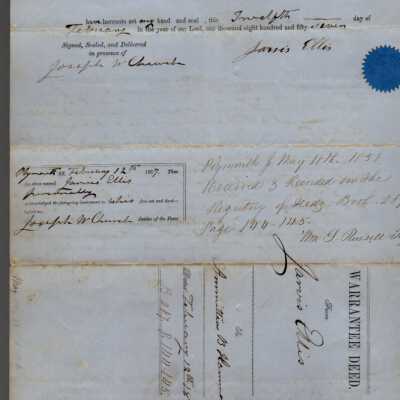 have hereunto set my hand and seal, this Twelfth day of
February in the year of our Lord, one thousand eight hundred and fifty seven
Signed, Sealed, and Delivered
in presence of
Joseph W Church
Jarvis Ellis
Plymouth ss. February 12th 1857. Then
the above named Jarvis Ellis
personally
acknowledged the foregoing instrument to be his free act and deed—
before me,
Joseph W Church Justice of the Peace
Plymouth ss May 11th. 1857.
Received & Recorded in the
Registry of Deeds Book
Page 144-145.
Wm S. Russell
WARRANTEE DEED.
From
Jarvis Ellis
to
B
Dated February 12th 18